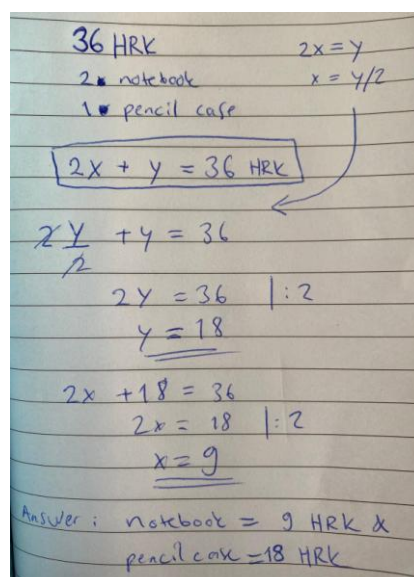 36 HRK
2x = y
2 notebook
x = y/2
1 pencil case
2x + y = 36 HRK
2 y/2 + y = 36
2y = 36 |:2
y = 18
2x + 18 = 36
2x = 18 |:2
x = 9
Answer: notebook = 9 HRK &
pencil case = 18 HRK